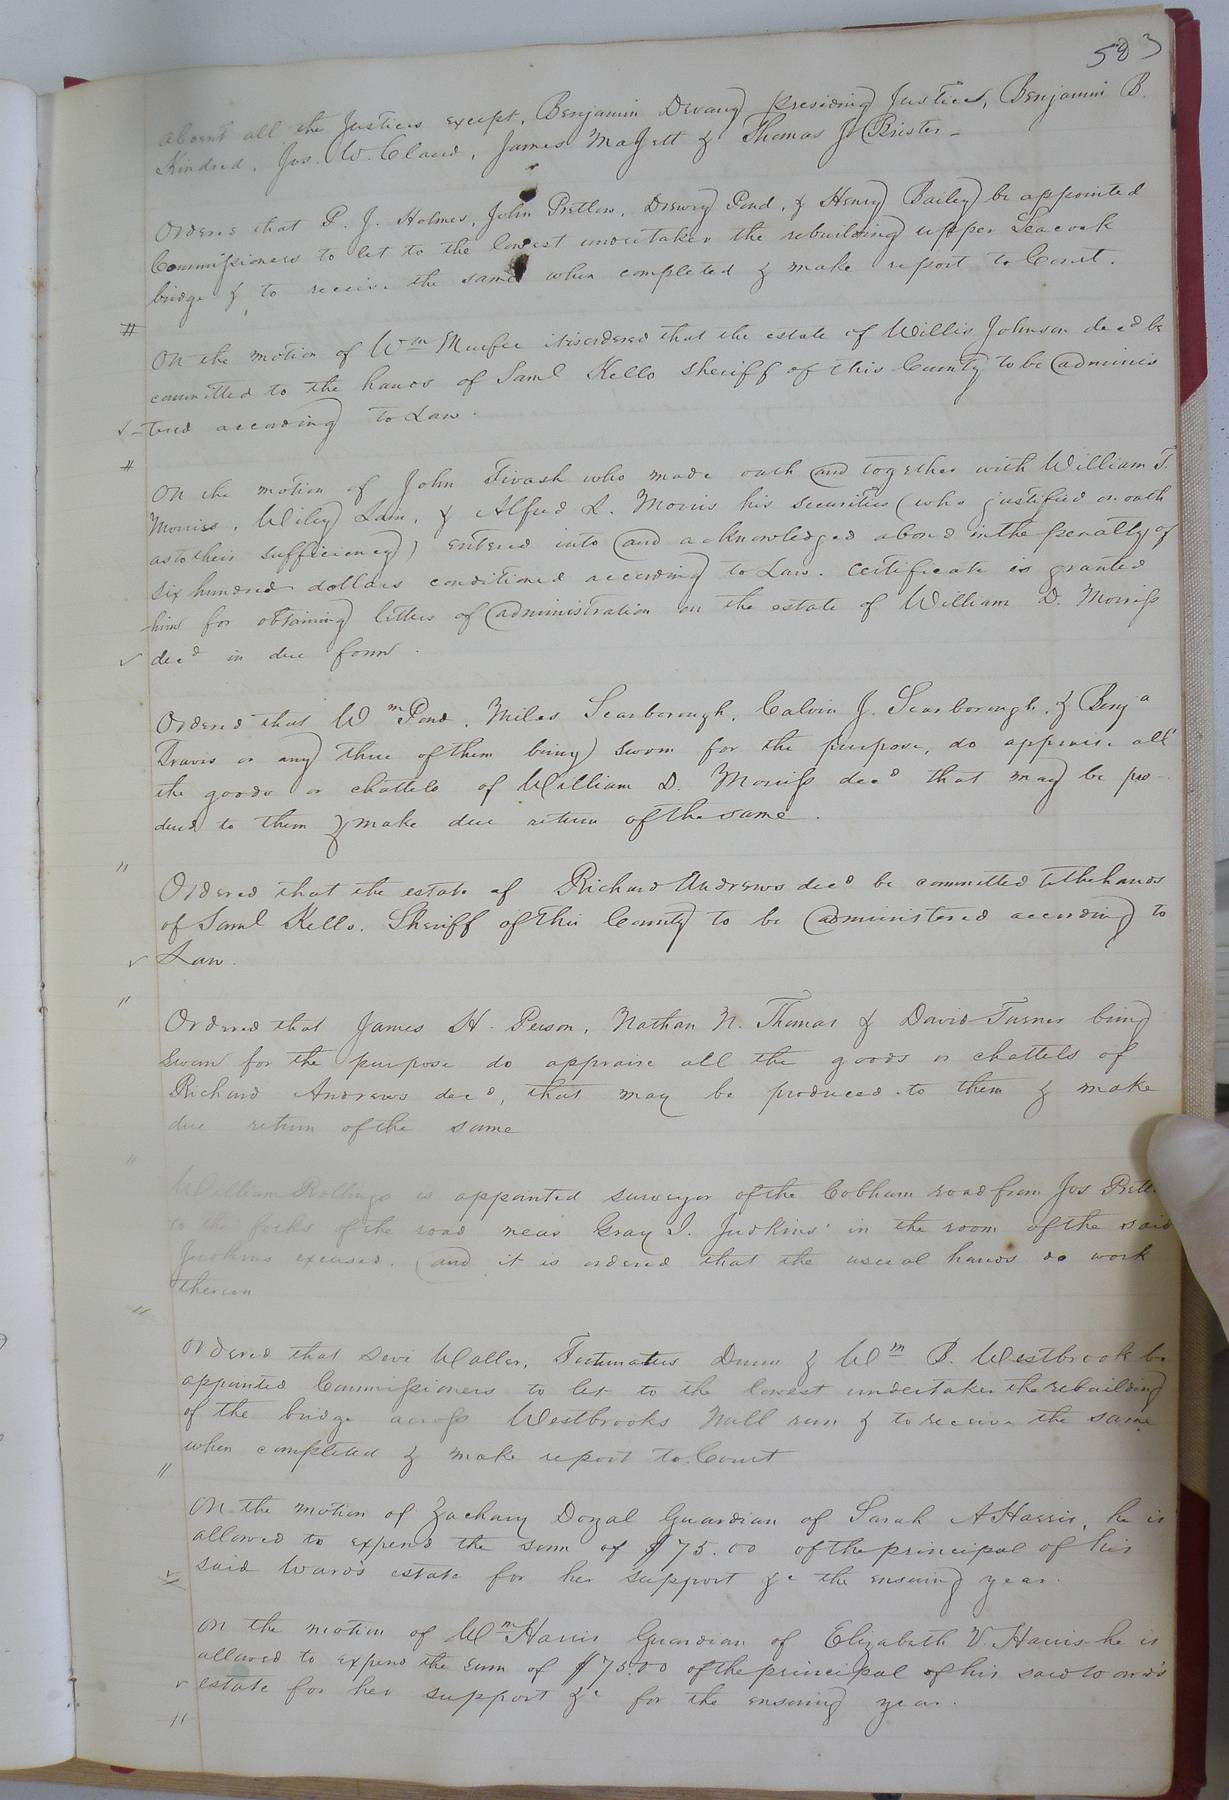 583
absent all the Justices except, Benjamin Devany presiding Justice, Benjamin B.
Kindred, Jos. W. Claud, James Majett & Thomas J Brister-
Ordered that P. J. Holmes, John Pretlow, Drewry Pond, & Henry Bailey be appointed
Commissioners to let to the lowest undertaker the rebuilding upper Seacock
bridge & to receive the same when completed & make report to Court.
#
On the motion of Wm Murfee it is ordered that the estate of Willis Johnson decd be
committed to the hands of Saml Kello Sheriff of this County to be adminis
✓ -tered according to Law.
#
On the motion of John Tivash who made oath and together with William T.
Morriss, Wiley Lain, & Alfred L. Morris his securities (who justified on oath
as to their sufficiency) entered into and acknowledged a bond in the penalty of
six hundred dollars conditioned according to Law. Certificate is granted
him for obtaining letters of administration on the estate of William D. Morriss
✓ decd in due form.
Ordered that Wm Pond, Miles Scarborough, Calvin J. Scarborough, & Benja
Travis or any three of them being sworn for the purpose, do appraise all
the goods or chattels of William D. Morriss decd that may be pro-
duced to them & make due return of the same.
"
Ordered that the estate of Richard Andrews decd be committed to the hands
of Saml Kello. Sheriff of this County to be administered according to
✓ Law.
"
Ordered that James H. Person, Nathan N. Thomas & David Turner being
sworn for the purpose do appraise all the goods or chattels of
Richard Andrews decd, that may be produced to them & make
due return of the same
"
William Rollings is appointed surveyor of the Cobham road from Jos Pretl
to the forks of the road near Gray I. Judkins' in the room of the said
Judkins excused, and it is ordered that the useual hands do work
thereon
"
Ordered that Levi Waller, Fortunatus Dunn & Wm P. Westbrook be
appointed Commissioners to let to the lowest undertaker the rebuilding
of the bridge across Westbrooks Mill run & to receive the same
when completed & make report to Court
"
On the motion of Zachary Doyal Guardian of Sarah A Harris, he is
allowed to expend the sum of $75.00 of the principal of his
✓ said ward's estate for her support &c the ensuing year.
On the motion of Wm Harris Guardian of Elizabeth V Harris he is
allowed to expend the sum of $75.00 of the principal of his said ward's
✓ estate for her support &c for the ensuing year.
"